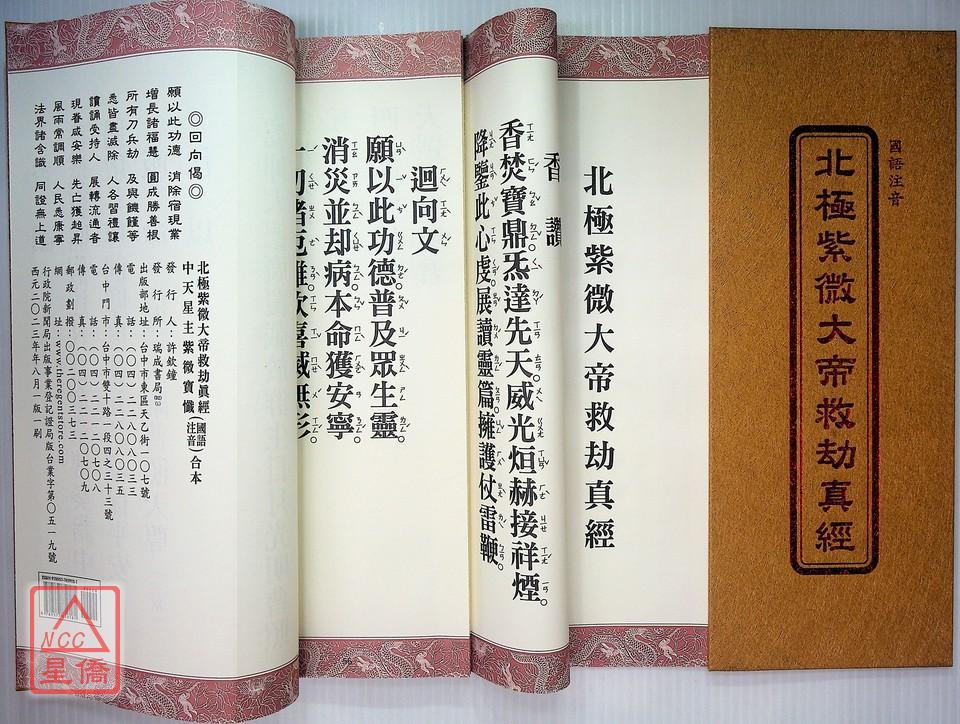 國語注音
北極紫微大帝救劫真經
北極紫微大帝救劫真經
香讚
香焚寶鼎。炁達先天。威光烜赫接祥煙。
降鑒此心虔。展讀靈篇。擁護仗雷鞭。
迴向文
願以此功德普及眾生靈。
消災並却病本命獲安寧。
◎回向偈◎
願以此功德 消除宿現業
增長諸福慧 圓成勝善根
所有刀兵劫 及與饑饉等
悉皆盡滅除 人各習禮讓
讀誦受持人 展轉流通者
現眷咸安樂 先亡獲超昇
風雨常調順 人民悉康寧
法界諸含識 同證無上道
北極紫微大帝救劫真經(國語注音)合本
中天星主紫微寶懺
發行人：許欽鐘
發行所：瑞成書局
出版部地址：台中市東區天乙街一〇七號
電話：(〇四)二二一二〇八〇三三
台中門市：台中市雙十路一段四之三十三號
網址：www.theregentstore.com
行政院新聞局出版事業登記證局版台業字第〇五一九號
西元二〇二三年八月一版一刷
NCC
星僑